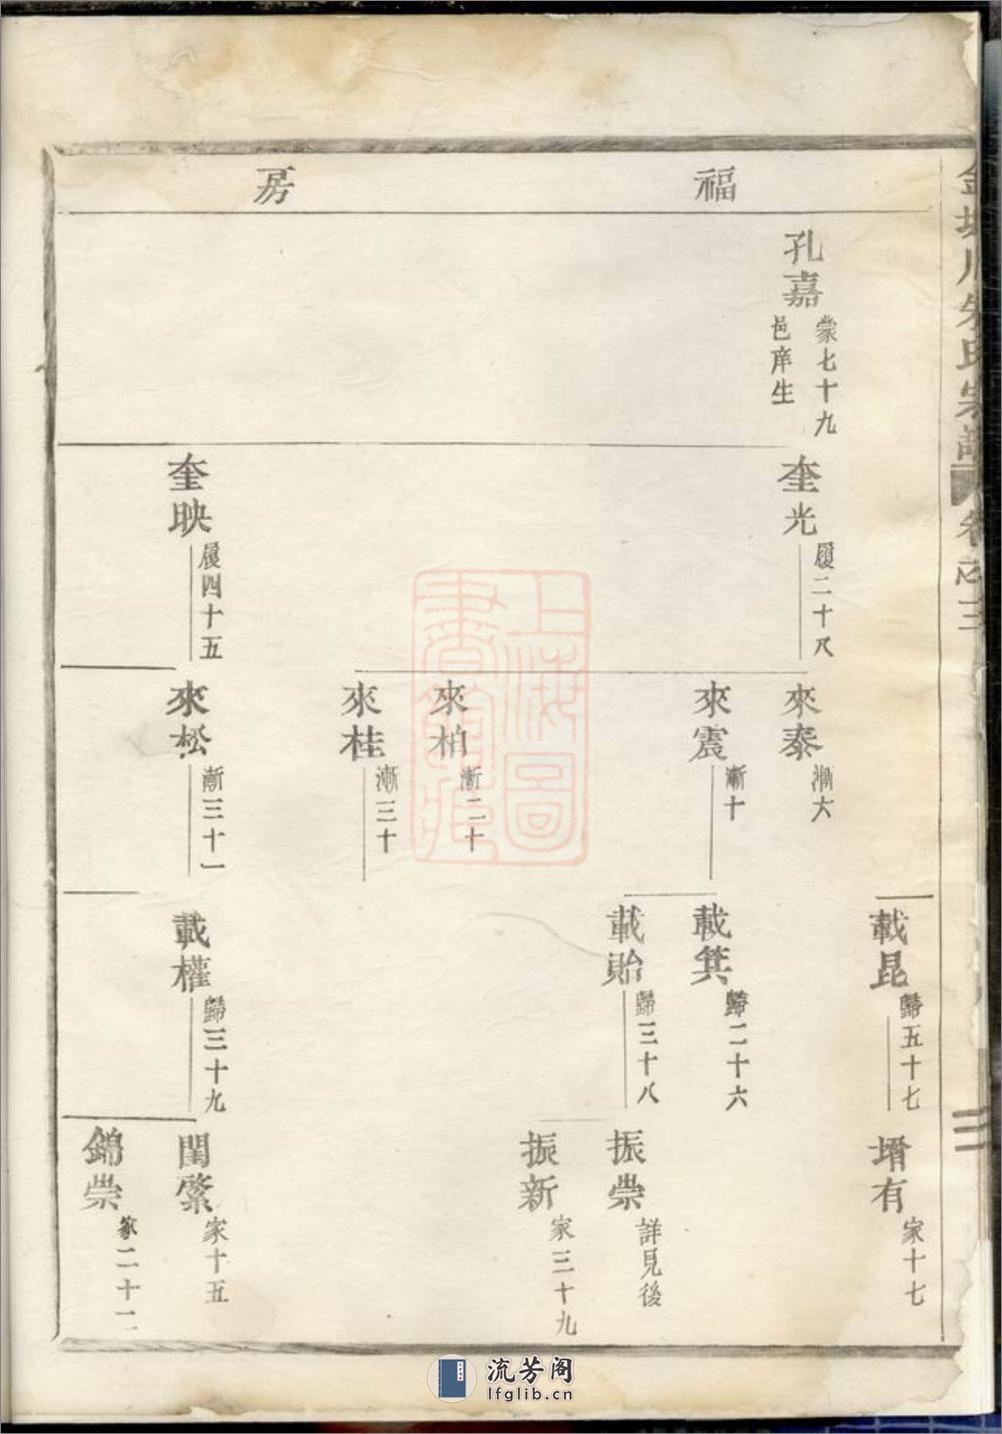 福房
孔嘉
蒙七十九
邑庠生
奎光
履二十八
奎映
履四十五
來泰
漸六
來震
漸十
來柏
漸二十
來桂
漸三十
來松
漸三十一
載昆
歸五十七
載箕
歸二十六
載貽
歸三十八
載權
歸三十九
增有
家十七
振崇
詳見後
振新
家三十九
閏繁
家十五
錦崇
家二十二
朱氏宗譜
卷之三
上海圖書館藏
流芳阁
lfglib.cn